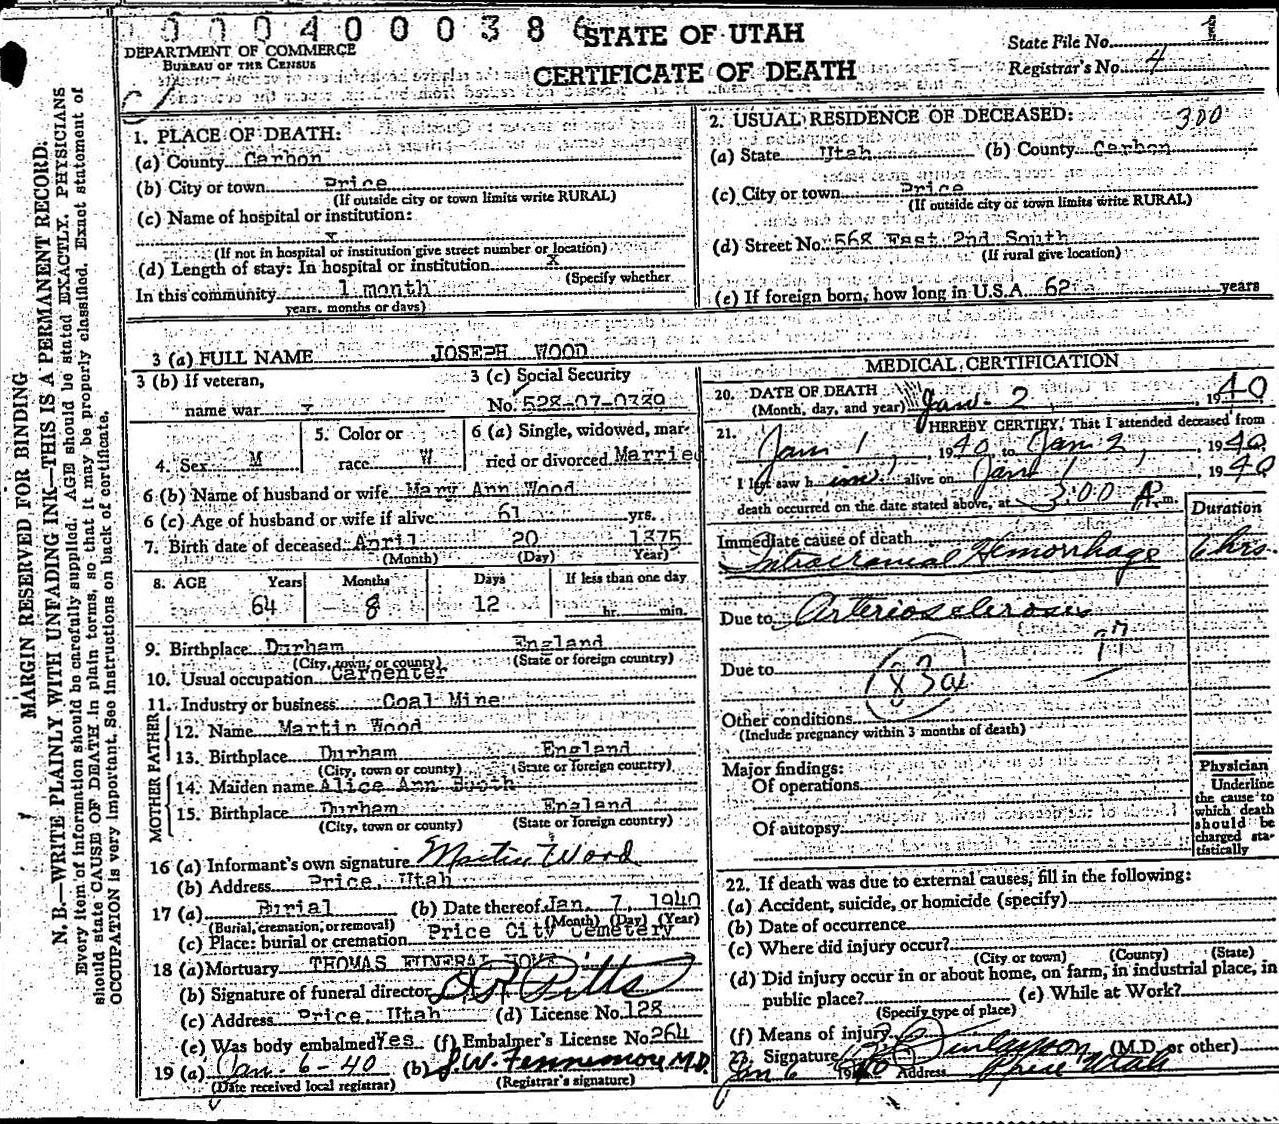 0004000386
STATE OF UTAH
CERTIFICATE OF DEATH
DEPARTMENT OF COMMERCE
BUREAU OF THE CENSUS
State File No. 1
Registrar's No. 4
MARGIN RESERVED FOR BINDING
N. B.—WRITE PLAINLY WITH UNFADING INK—THIS IS A PERMANENT RECORD.
Every item of information should be carefully supplied. AGE should be stated EXACTLY. PHYSICIANS
should state CAUSE OF DEATH in plain terms, so that it may be properly classified. Exact statement of
OCCUPATION is very important. See instructions on back of certificate.
1. PLACE OF DEATH:
(a) County Carbon
(b) City or town Price
(If outside city or town limits write RURAL)
(c) Name of hospital or institution:
x
(If not in hospital or institution give street number or location)
(d) Length of stay: In hospital or institution x
(Specify whether
In this community 1 month
years, months or days)
2. USUAL RESIDENCE OF DECEASED: 300
(a) State Utah (b) County Carbon
(c) City or town Price
(If outside city or town limits write RURAL)
(d) Street No. 568 East 2nd South
(If rural give location)
(e) If foreign born, how long in U.S.A. 62 years
3 (a) FULL NAME JOSEPH WOOD
3 (b) If veteran,
name war x
3 (c) Social Security
No. 528-07-0389
4. Sex M
5. Color or
race W
6 (a) Single, widowed, mar-
ried or divorced Married
6 (b) Name of husband or wife Mary Ann Wood
6 (c) Age of husband or wife if alive 61 yrs.
7. Birth date of deceased April 20 1875
(Month) (Day) Year)
8. AGE Years Months Days If less than one day
64 8 12 hr. min.
9. Birthplace Durham England
(City, town, or county) (State or foreign country)
10. Usual occupation Carpenter
11. Industry or business Coal Mine
FATHER
12. Name Martin Wood
13. Birthplace Durham England
(City, town or county) (State or foreign country)
MOTHER
14. Maiden name Alice Ann Booth
15. Birthplace Durham England
(City, town or county) (State or foreign country)
16 (a) Informant's own signature Martin Wood
(b) Address Price, Utah
17 (a) Burial (b) Date thereof Jan. 7, 1940
(Burial, cremation, or removal) (Month) (Day) (Year)
(c) Place: burial or cremation Price City Cemetery
18 (a) Mortuary THOMAS FUNERAL HOME
(b) Signature of funeral director Pitts
(c) Address Price, Utah (d) License No. 128
(e) Was body embalmed Yes (f) Embalmer's License No. 264
19 (a) Jan-6-40 (b) J.W. Fennemore M.D.
(Date received local registrar) (Registrar's signature)
MEDICAL CERTIFICATION
20. DATE OF DEATH
(Month, day, and year) Jan-2, 1940
21. I HEREBY CERTIFY, That I attended deceased from
Jan 1, 1940, to Jan 2, 1940
I last saw him alive on Jan 1 1940
death occurred on the date stated above, at 3:00 A. m.
Duration
Immediate cause of death
Intracranial Hemorrhage 6 hrs.
Due to Arteriosclerosis
Due to
83a
Other conditions
(Include pregnancy within 3 months of death)
Major findings:
Of operations
Of autopsy
Physician
Underline
the cause to
which death
should be
charged sta-
tistically
22. If death was due to external causes, fill in the following:
(a) Accident, suicide, or homicide (specify)
(b) Date of occurrence
(c) Where did injury occur?
(City or town) (County) (State)
(d) Did injury occur in or about home, on farm, in industrial place, in
public place? (e) While at Work?
(Specify type of place)
(f) Means of injury
23. Signature (M.D. or other)
Jan 6 1940 Address Price Utah